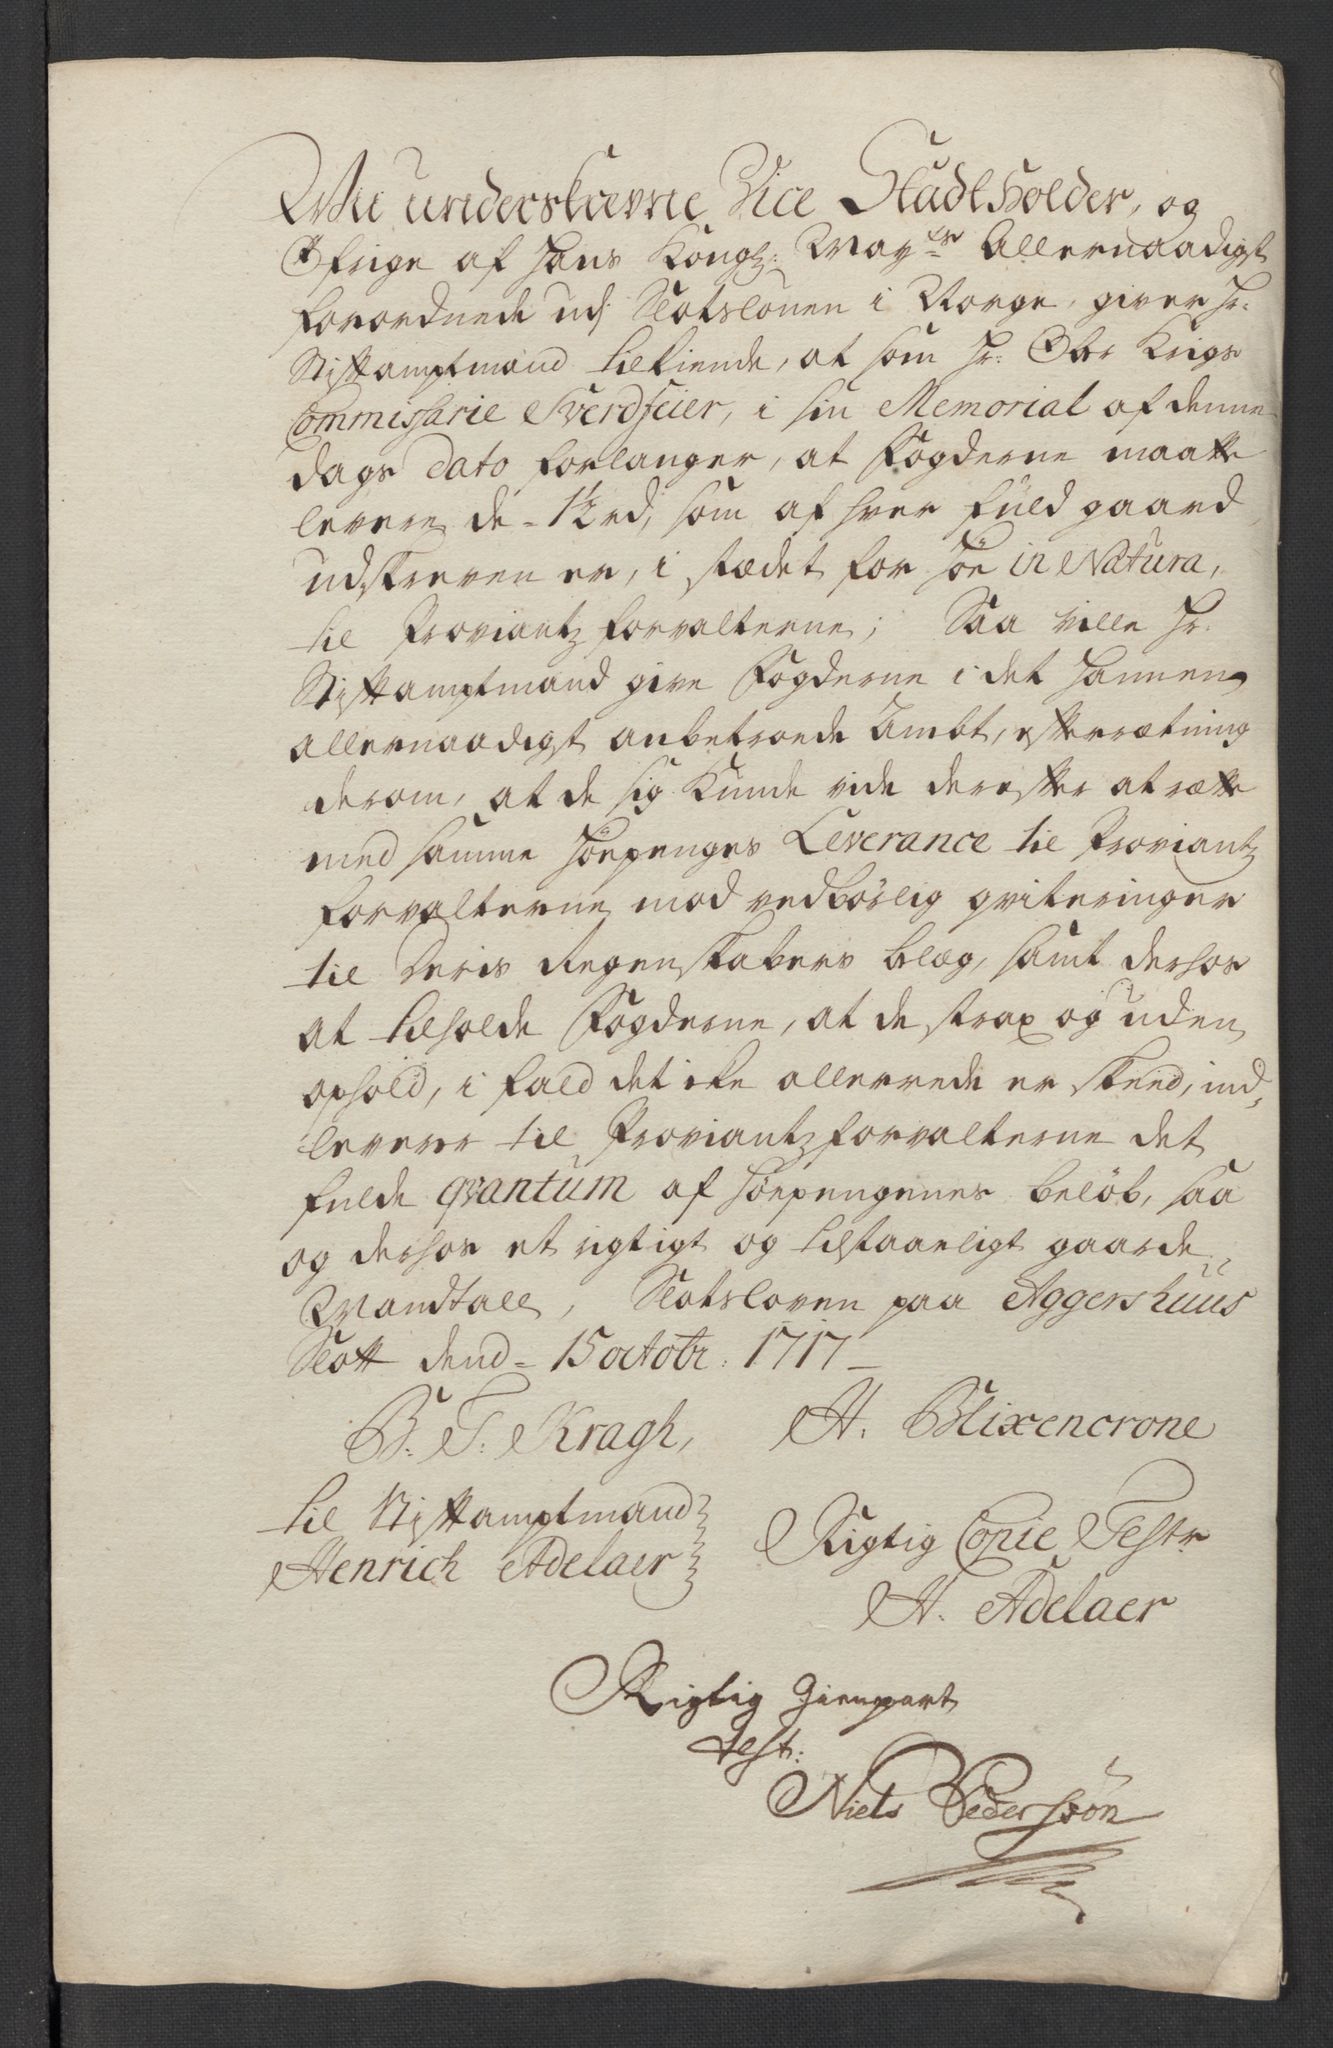 Wii underskrevne Vice Stadtholder, og
Øfrige af Hans Kongl: May:ts Allernaadigst
forordnede udj Slotsloven i Norge, giver Hr:
Stiftamptmand tilkiende, at som Hr: Ober Krigs
Commissarie Sverdfeier, i sin Memorial af denne
dags dato forlanger, at Fogderne maatte
levere de - 1½ rd, som af hver fuld gaard
udskreven er, i stædet for Höe in Natura,
til Proviantz forvalterne; Saa ville Hr:
Stiftamptmand give Fogderne i det Hannem
allernaadigst anbetroede Ambt, efterrætning
derom, at de sig kunde vide derefter at rætte
med samme Höepenges Leverance til Proviantz
forvalterne mod vedbörlig qviteringer
til deris Regenskabers belæg, samt derhos
at tilholde Fogderne, at de strax og uden
ophold, i fald det icke allerrede er skeed, ind,
leverer til Proviantzforvalterne det
fulde qvantum af Höepengenes belöb, saa
og derhos et rigtigt og tilstaaeligt gaarde
Mandtall, Slotsloven paa Aggershuus
Slott dend - 15 octobr: 1717 -
B. F: Kragh, H. Blixencrone
til Stiftamptmand
Henrich Adelaer
Rigtig Copie Testr
H. Adelaer
Rigtig Gienpart
test:
Niels Pederssön